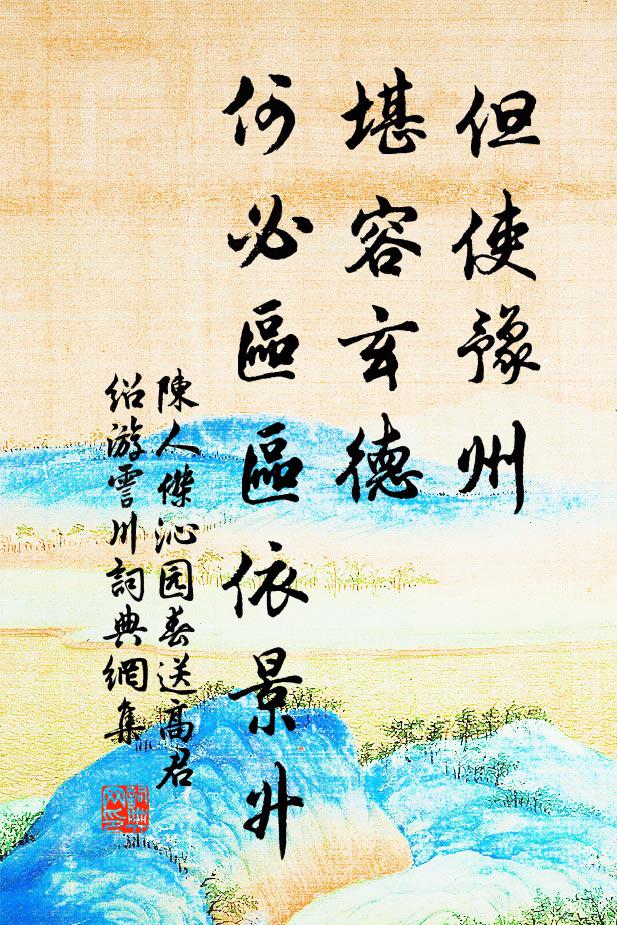 但使豫州
堪容玄德
何必區區依景升
陳人傑沁园春送高君
绍游霅川詞典網集